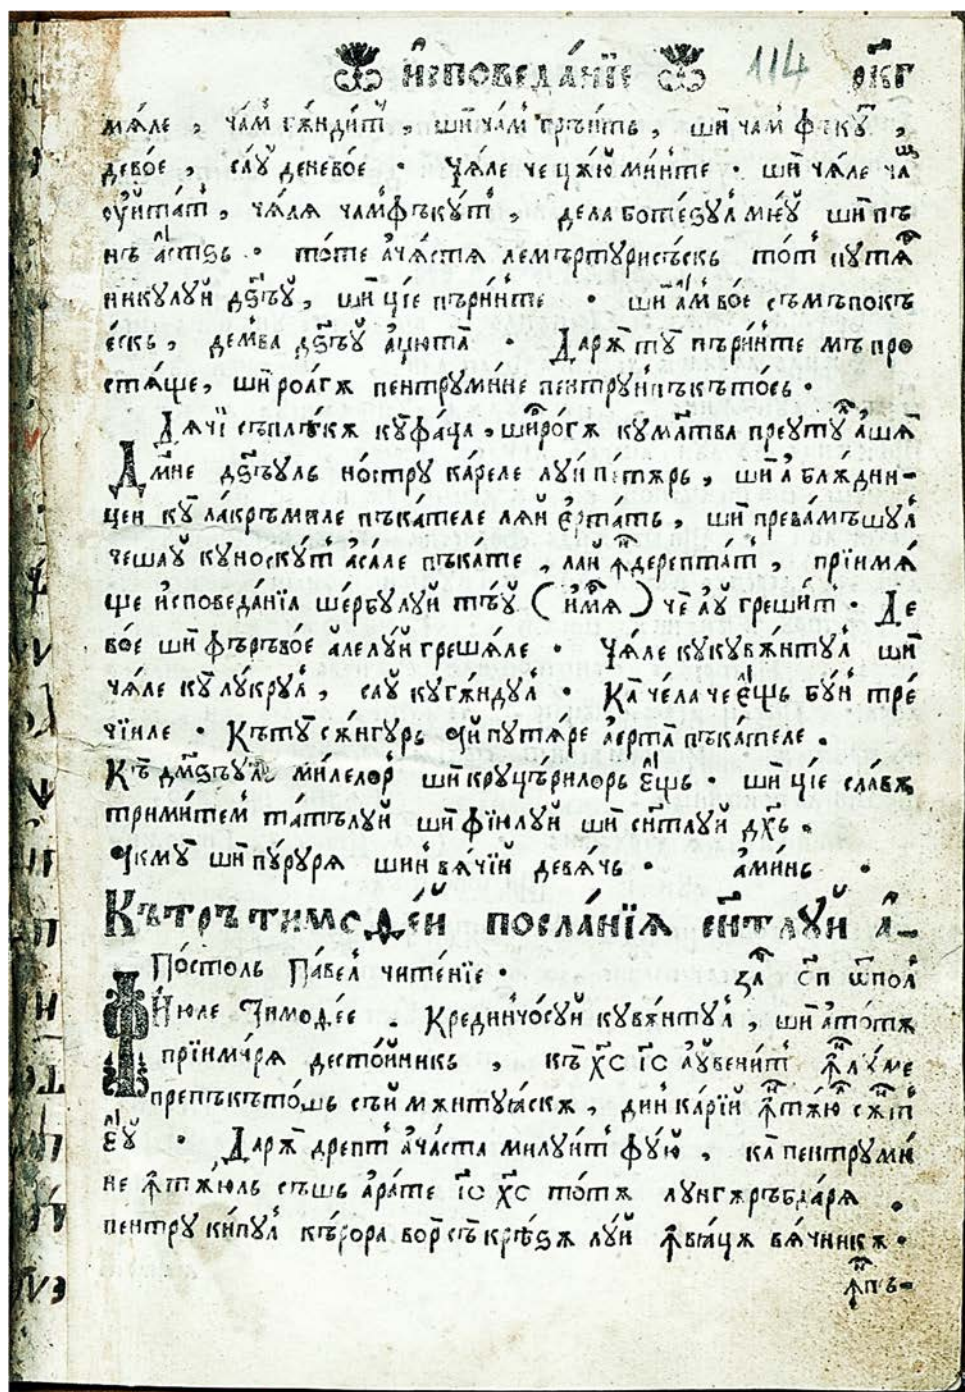 И҆споведа́нїе 114 рк҃г
мѧ́ле , ча́м гѫ́ндит , ши ча́м грѣ́ить , ши чам фъкꙋ̑т ,
дево́е , са́ꙋ деневое · Чѧ́ле че цѫ́ю ми́нте · ши чѧ́ле чащ
ᲂу҆ита́т , чѧ́лѧ чамфъкꙋ́т , дела боте́ꙃꙋл мїе́ꙋ ши пъ
нъ а́стꙃь · то́те ачѧ́стѧ лемъртꙋрисѣ́скь то́т пꙋтѧ
никꙋлꙋй дꙃ҃ъꙋ , ши цїе пъри́нте · ши а҆м во́е съмъпокъ
е́скь , демва дꙃ҃ъꙋ ацюта · Дарѫ тꙋ пъри́нте мъ про
стѧ́ще , ши рогѫ пентрꙋми́не пентрꙋ пъкъто́сь ·
Дѧ́чїи съплѣ́кѫ кꙋ фа́ца , ши ро́гѫ кꙋма́тва преꙋтꙋ ашѧ
Дмне дꙃ҃ъꙋль но́стрꙋ ка́реле лꙋи пе́тѫрь , ши а блѫ́дни-
цеи кꙋ ла́кръмиле пъка́теле лѧй е҆рта́ть , ши прева́мъшꙋл
чешаꙋ кꙋноскꙋ́т аса́ле пъка́те , лай ꙟ҆дерепта́т , прїимѧ́
ще и҆споведа́нїа ше́рбꙋлꙋй тъ́ꙋ ( и҆м҃ѧ ) че аꙋ греши́т · Де
во́е ши фъръво́е а҆лелꙋ́й грешѧ́ле · Чѧ́ле кꙋкꙋвѫ́нтꙋл ши
чѧ́ле кꙋ лꙋ́крꙋл , саꙋ кꙋгѫ́ндꙋл · Ка че́ла че е҆щь бꙋ́н тре́
чїиле · Къ тꙋ сѫ́нгꙋрь ꙟй пꙋтѧ́ре а҆ерта пъка́теле .
Къ дм҃ꙃъꙋл ми́лелор ши крꙋцѫ́рилорь е҆щь · ши цїе сла́вѫ
трими́тем та́тълꙋй ши фїюлꙋи ши с҃нтлꙋй дх҃ь .
Ꙟкмꙋ ши пꙋ́рꙋрѧ шин вѧ́чїй девѧ́чь · ами́нь ·
Кътръ тимоѳе́й посла́нїѧ с҃нтлꙋй а҆-
По́столь Па́вел чите́нїе · за҃ сп҃ ѿпол
Фїюле Тимоѳе́е . Крединчо́сꙋй кꙋвѫ́нтꙋл , ши ато́тѫ
прїими́рѧ десто́йникь , къ хс҃ іс҃ аꙋвени́т ꙟ҆лꙋ́ме
препъкъто́шь съй мѫнтꙋꙗ́скѫ , дин ка́рїй ꙟ҆тѫ́ю сѫ́нт
е҆ꙋ · Дарѫ дрепт ача́ста милꙋи́т фꙋ́ю , ка пентрꙋми́
не ꙟ҆тѫ́юль съшь ара́те іс҃ хс҃ то́тѫ лꙋнгѫръбдарѧ .
пентрꙋ ки́пꙋл къ́рора вор съ крѣ́ꙃѫ лꙋй ꙟ҆вїацѫ вѧ́чникѫ ·
ꙟ҆пъ-